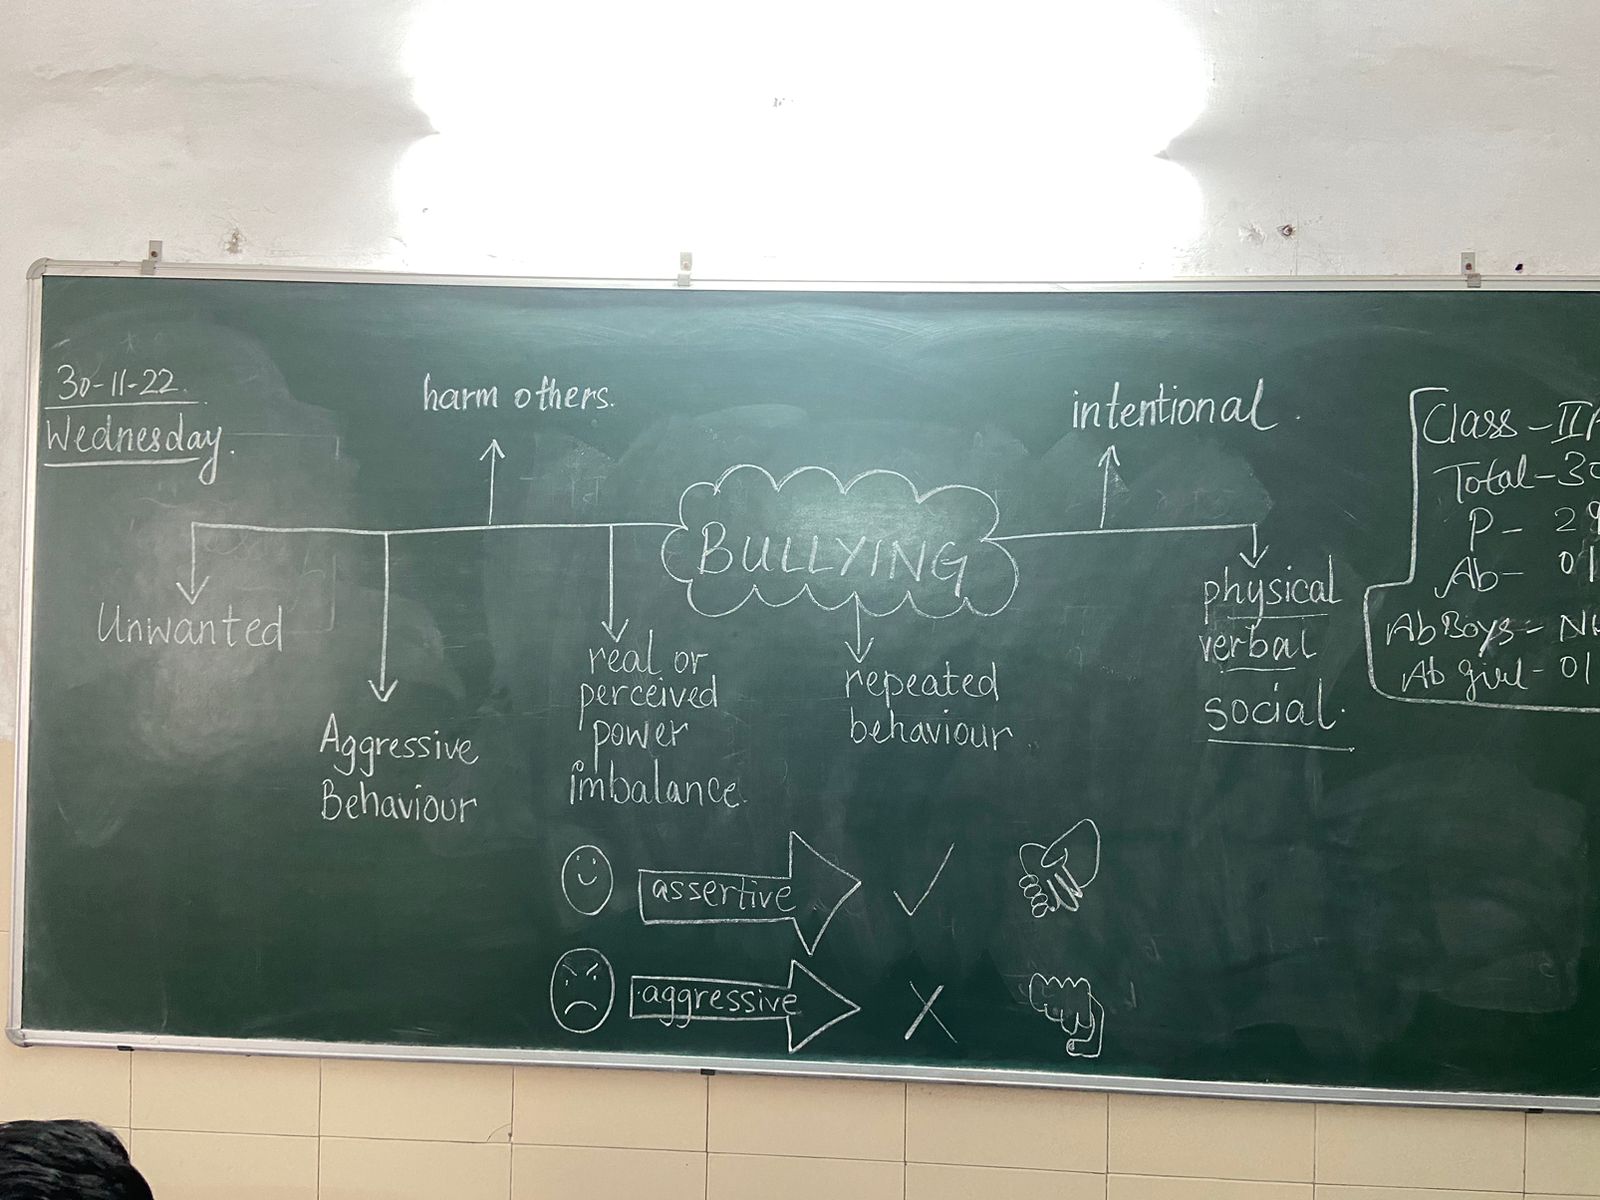 30-11-22.
Wednesday.
harm others.
intentional.
BULLYING
Unwanted
Aggressive
Behaviour
real or
perceived
power
imbalance.
repeated
behaviour.
physical
verbal
social.
assertive
aggressive
Class - II
Total - 30
P - 29
Ab - 01
Ab Boys -
Ab girl - 01